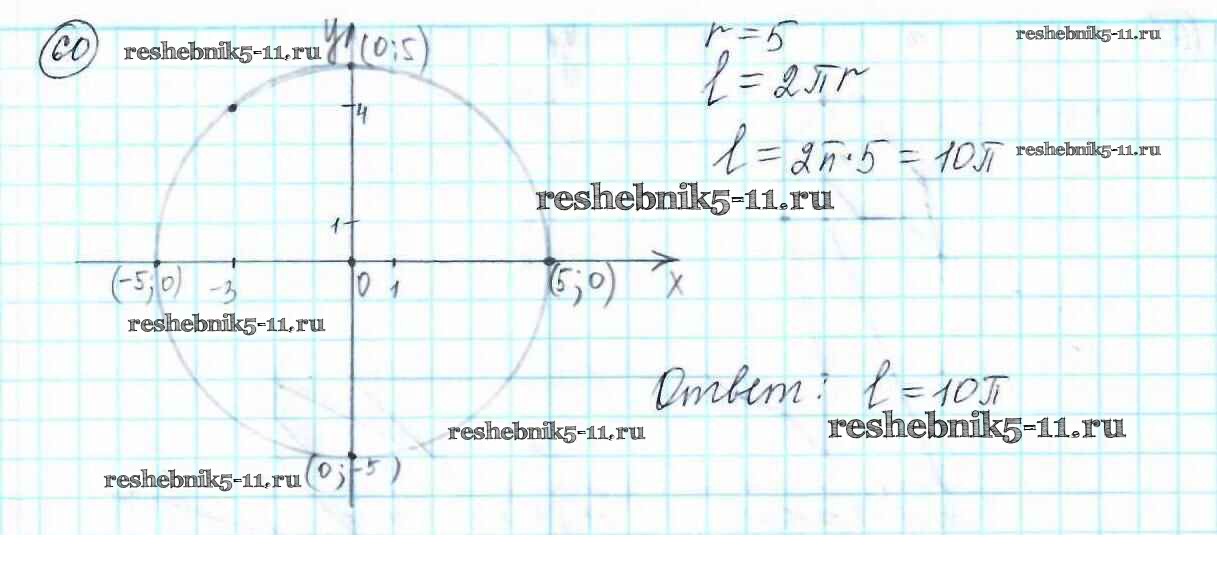 60
reshebnik5-11.ru
y (0;5)
r = 5
reshebnik5-11.ru
l = 2πr
4
l = 2π·5 = 10π
reshebnik5-11.ru
reshebnik5-11.ru
1
(-5;0) -3 0 1 (5;0) x
reshebnik5-11.ru
Ответ: l = 10π
reshebnik5-11.ru
reshebnik5-11.ru
(0;-5)
reshebnik5-11.ru